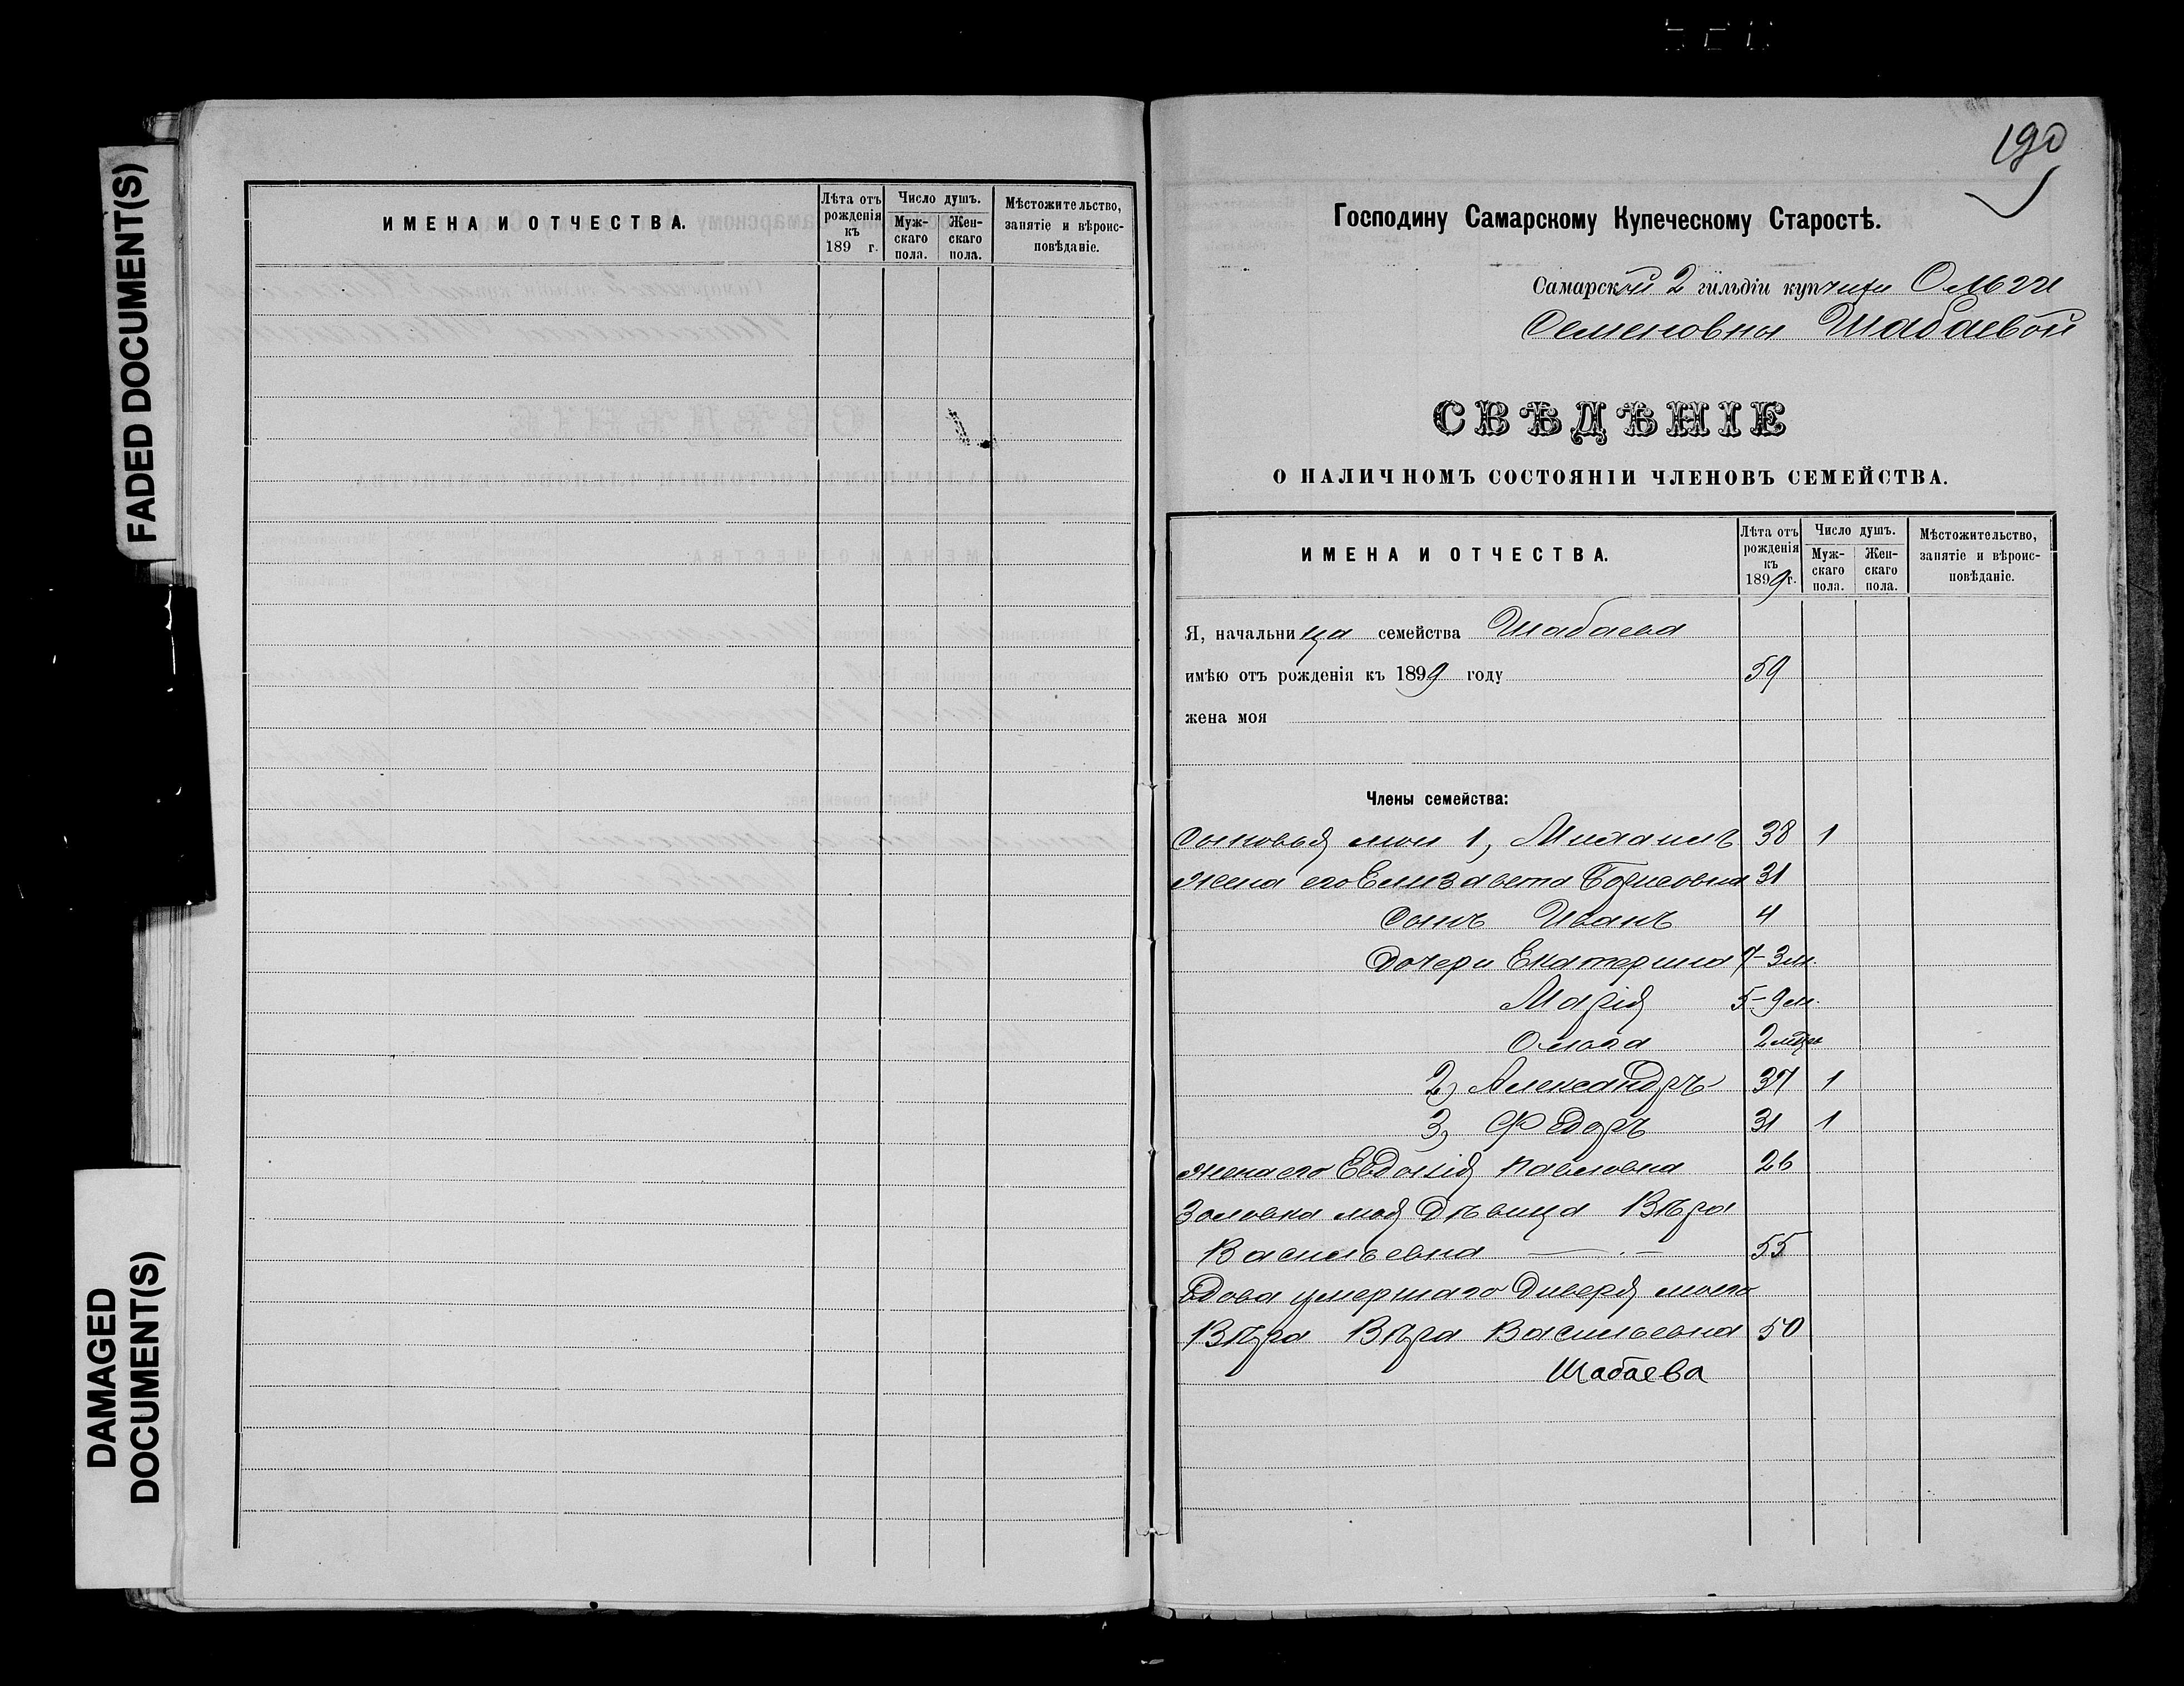 FADED DOCUMENT(S)
DAMAGED
DOCUMENT(S)
ИМЕНА И ОТЧЕСТВА.
Лѣта отъ рожденія къ 189 г.
Число душъ.
Муж- скаго пола.
Жен- скаго пола.
Мѣстожительство, занятіе и вѣроис- повѣданіе.
190
Господину Самарскому Купеческому Старостѣ.
Самарской 2 гильдіи купчихи Ольги
Семеновны Шабаевой
СВѢДѢНІЕ
О НАЛИЧНОМЪ СОСТОЯНІИ ЧЛЕНОВЪ СЕМЕЙСТВА.
ИМЕНА И ОТЧЕСТВА.
Лѣта отъ рожденія къ 1899 г.
Число душъ.
Муж- скаго пола.
Жен- скаго пола.
Мѣстожительство, занятіе и вѣроис- повѣданіе.
Я, начальница семейства Шабаева
имѣю отъ рожденія къ 1899 году 59
жена моя
Члены семейства:
Сыновья мои 1, Михаилъ 38 1
Жена его Елизавета Борисовна 31
Сынъ Иванъ 4
Дочери Екатерина 7-3 м.
Марія 5-9 м.
Ольга 2 мѣс
2, Александръ 37 1
3, Федоръ 31 1
Жена его Евдокія Павловна 26
Золовка моя дѣвица Вѣра
Васильевна 55
Вдова умершаго диверя моего
Вѣра Вѣра Васильевна 50
Шабаева